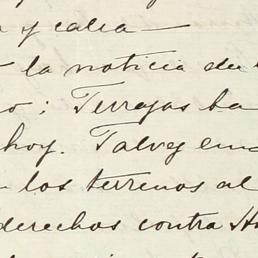 y calra —
la noticia de
o; Terrazas ha
hoy. Talvez en
los terrenos al
derechos contra